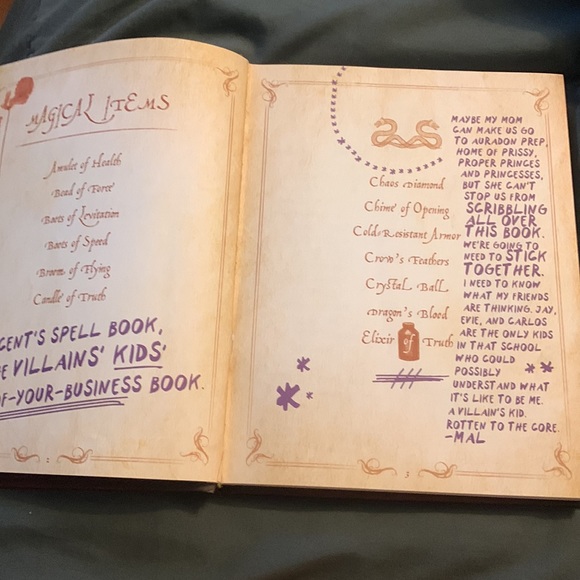 MAGICAL ITEMS
Amulet of Health
Bead of Force
Boots of Levitation
Boots of Speed
Broom of Flying
Candle of Truth
CENT'S SPELL BOOK,
E VILLAINS' KIDS'
OF-YOUR-BUSINESS BOOK.
2
Chaos Diamond
Chime of Opening
Cold-Resistant Armor
Crow's Feathers
Crystal Ball
Dragon's Blood
Elixir of Truth
MAYBE MY MOM
CAN MAKE US GO
TO AURADON PREP,
HOME OF PRISSY,
PROPER PRINCES
AND PRINCESSES,
BUT SHE CAN'T
STOP US FROM
SCRIBBLING
ALL OVER
THIS BOOK.
WE'RE GOING TO
NEED TO STICK
TOGETHER.
I NEED TO KNOW
WHAT MY FRIENDS
ARE THINKING. JAY,
EVIE, AND CARLOS
ARE THE ONLY KIDS
IN THAT SCHOOL
WHO COULD
POSSIBLY
UNDERSTAND WHAT
IT'S LIKE TO BE ME.
A VILLAIN'S KID.
ROTTEN TO THE CORE.
-MAL
3